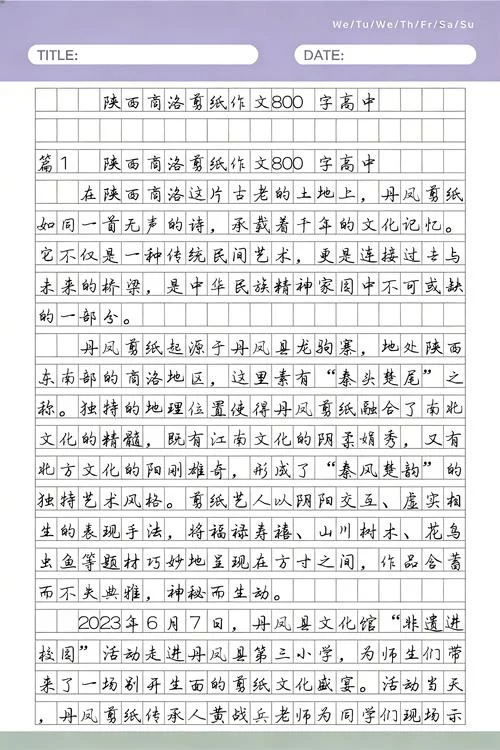 We/Tu/We/Th/Fr/Sa/Su
TITLE: DATE:
陕西商洛剪纸作文800 字高中
篇1 陕西商洛剪纸作文800 字高中
在陕西商洛这片古老的土地上，丹凤剪纸
如同一首无声的诗，承载着千年的文化记忆。
它不仅是一种传统民间艺术，更是连接过去与
未来的桥梁，是中华民族精神家园中不可或缺
的一部分。
丹凤剪纸起源于丹凤县龙驹寨，地处陕西
东南部的商洛地区，这里素有“秦头楚尾”之
称。独特的地理位置使得丹凤剪纸融合了南北
文化的精髓，既有江南文化的阴柔娟秀，又有
北方文化的阳刚雄奇，形成了“秦风楚韵”的
独特艺术风格。剪纸艺人以阴阳交互、虚实相
生的表现手法，将福禄寿禧、山川树木、花鸟
虫鱼等题材巧妙地呈现在方寸之间，作品含蓄
而不失典雅，神秘而生动。
2023年6月7日，丹凤县文化馆“非遗进
校园”活动走进丹凤县第三小学，为师生们带
来了一场别开生面的剪纸文化盛宴。活动当天
，丹凤剪纸传承人黄战兵老师为同学们现场示